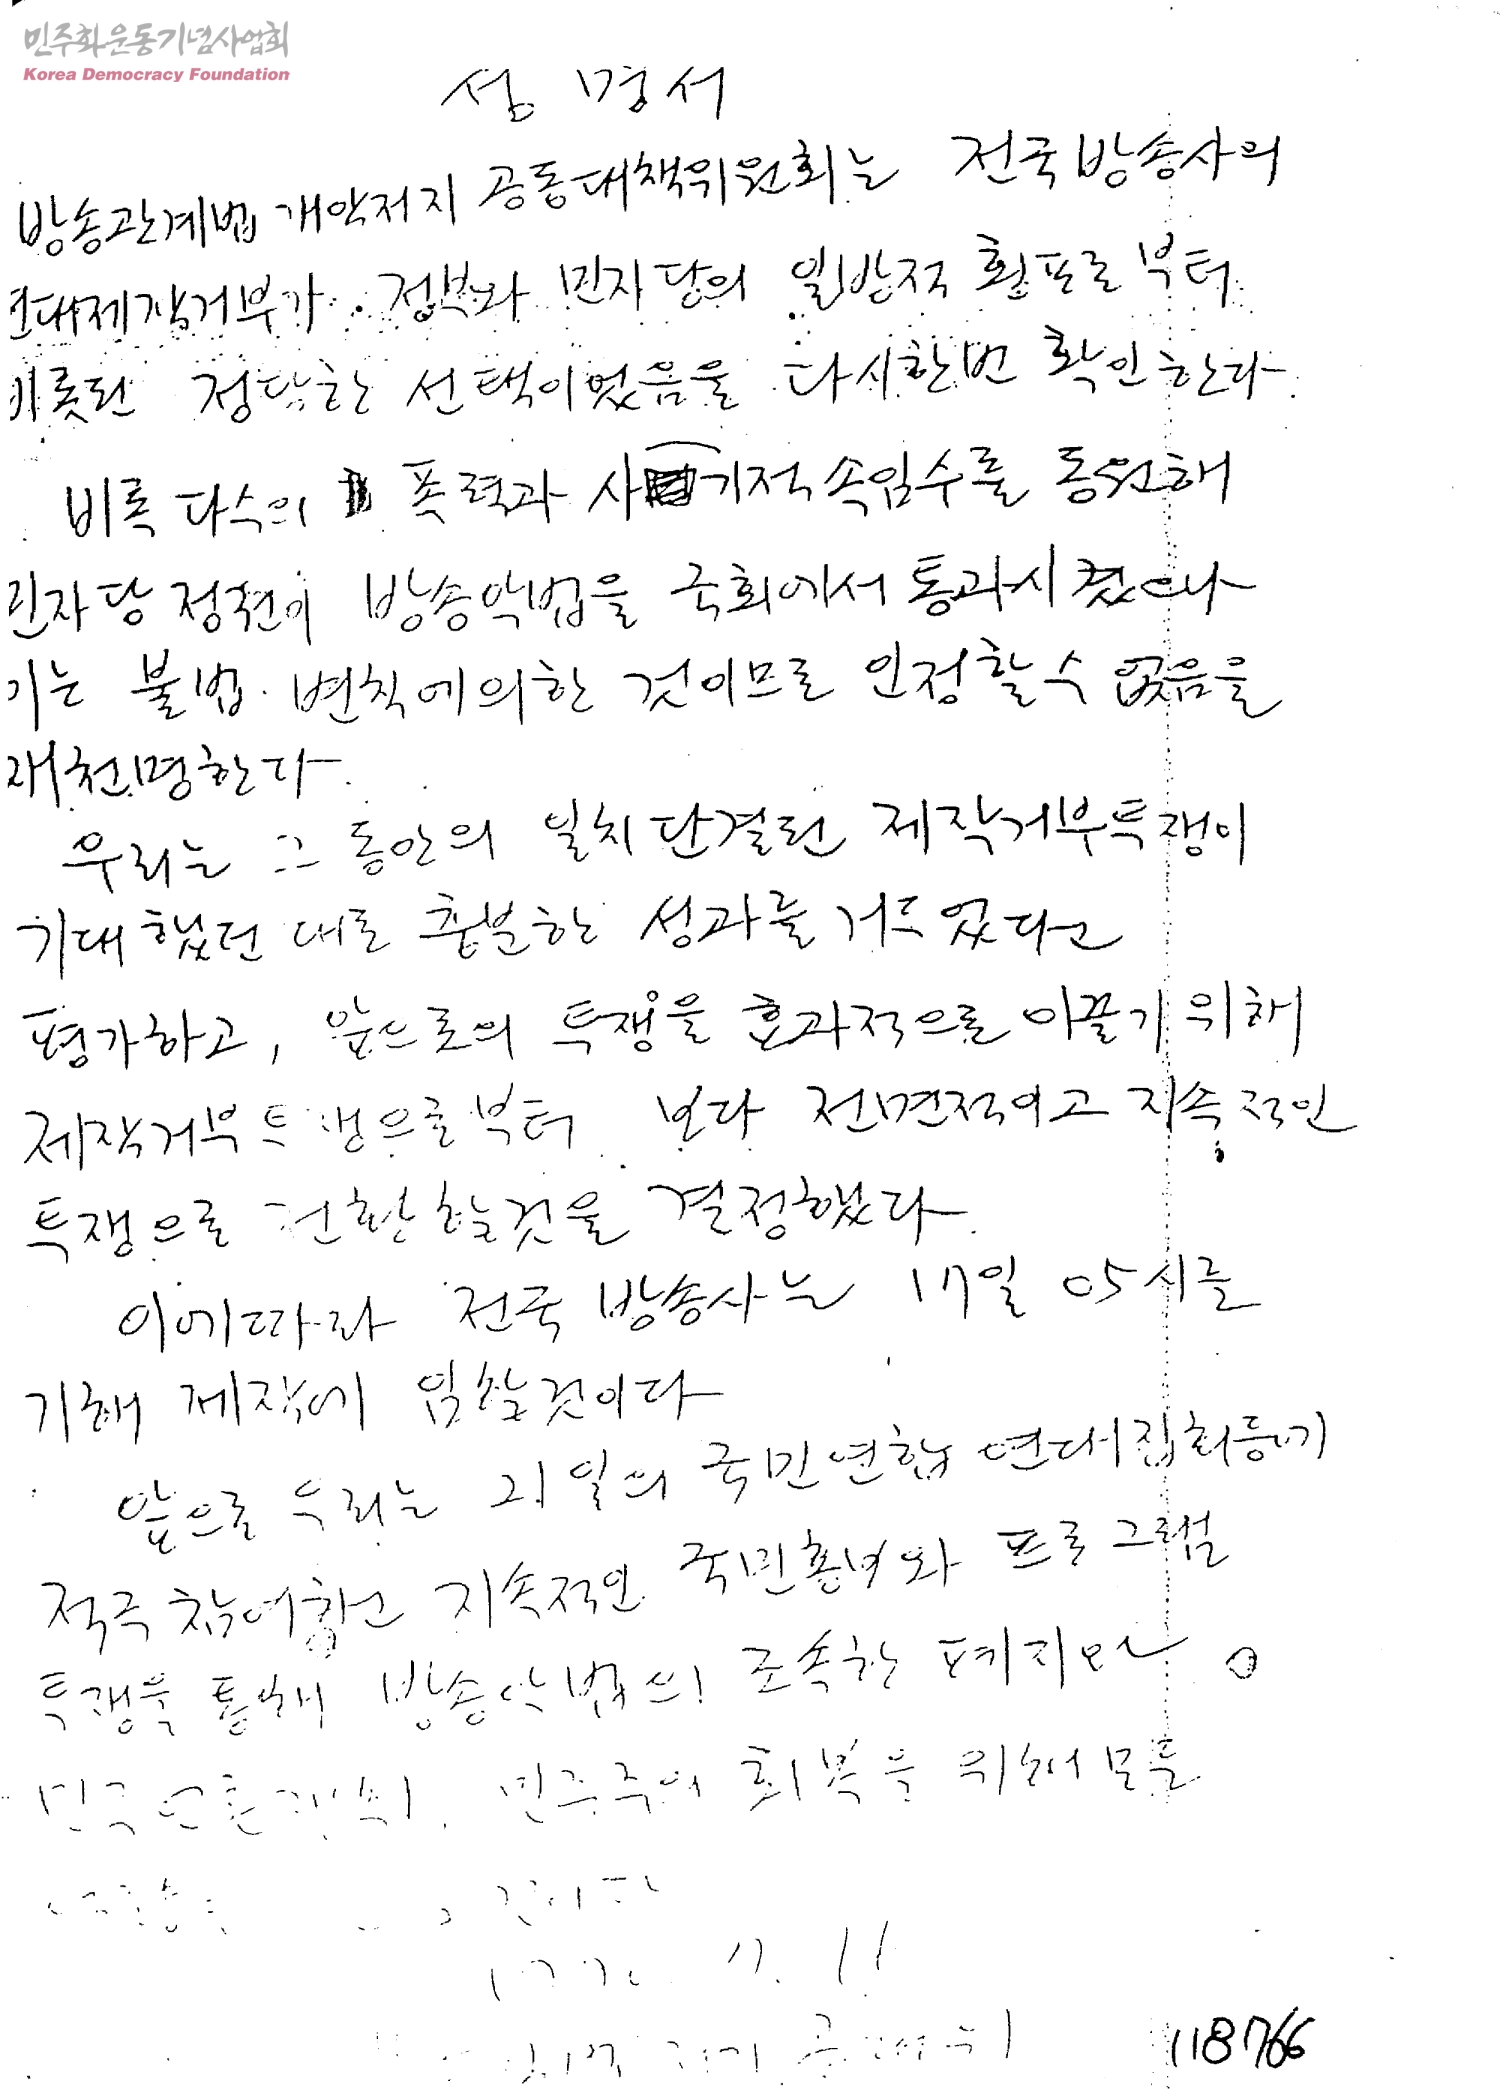 민주화운동기념사업회
Korea Democracy Foundation
성명서
방송관계법 개악저지 공동대책위원회는 전국방송사의
연대제작거부가 정부와 민자당의 일방적 횡포로부터
비롯된 정당한 선택이었음을 다시한번 확인한다.
비록 다수의 폭력과 사기적 속임수를 동원해
민자당정권이 방송악법을 국회에서 통과시켰으나
이는 불법·변칙에의한 것이므로 인정할수 없음을
재천명한다.
우리는 그동안의 일치단결된 제작거부투쟁이
기대했던 대로 충분한 성과를 거두었다고
평가하고, 앞으로의 투쟁을 효과적으로 이끌기위해
제작거부투쟁으로부터 보다 전면적이고 지속적인
투쟁으로 전환할것을 결정했다.
이에따라 전국 방송사는 17일 05시를
기해 제작에 임할것이다
앞으로 우리는 21일의 국민연합 연대집회등에
적극 참여하고 지속적인 국민홍보와 프로그램
투쟁을 통해 방송악법의 조속한 폐지와
민주주의 회복을 위해 모든
118766